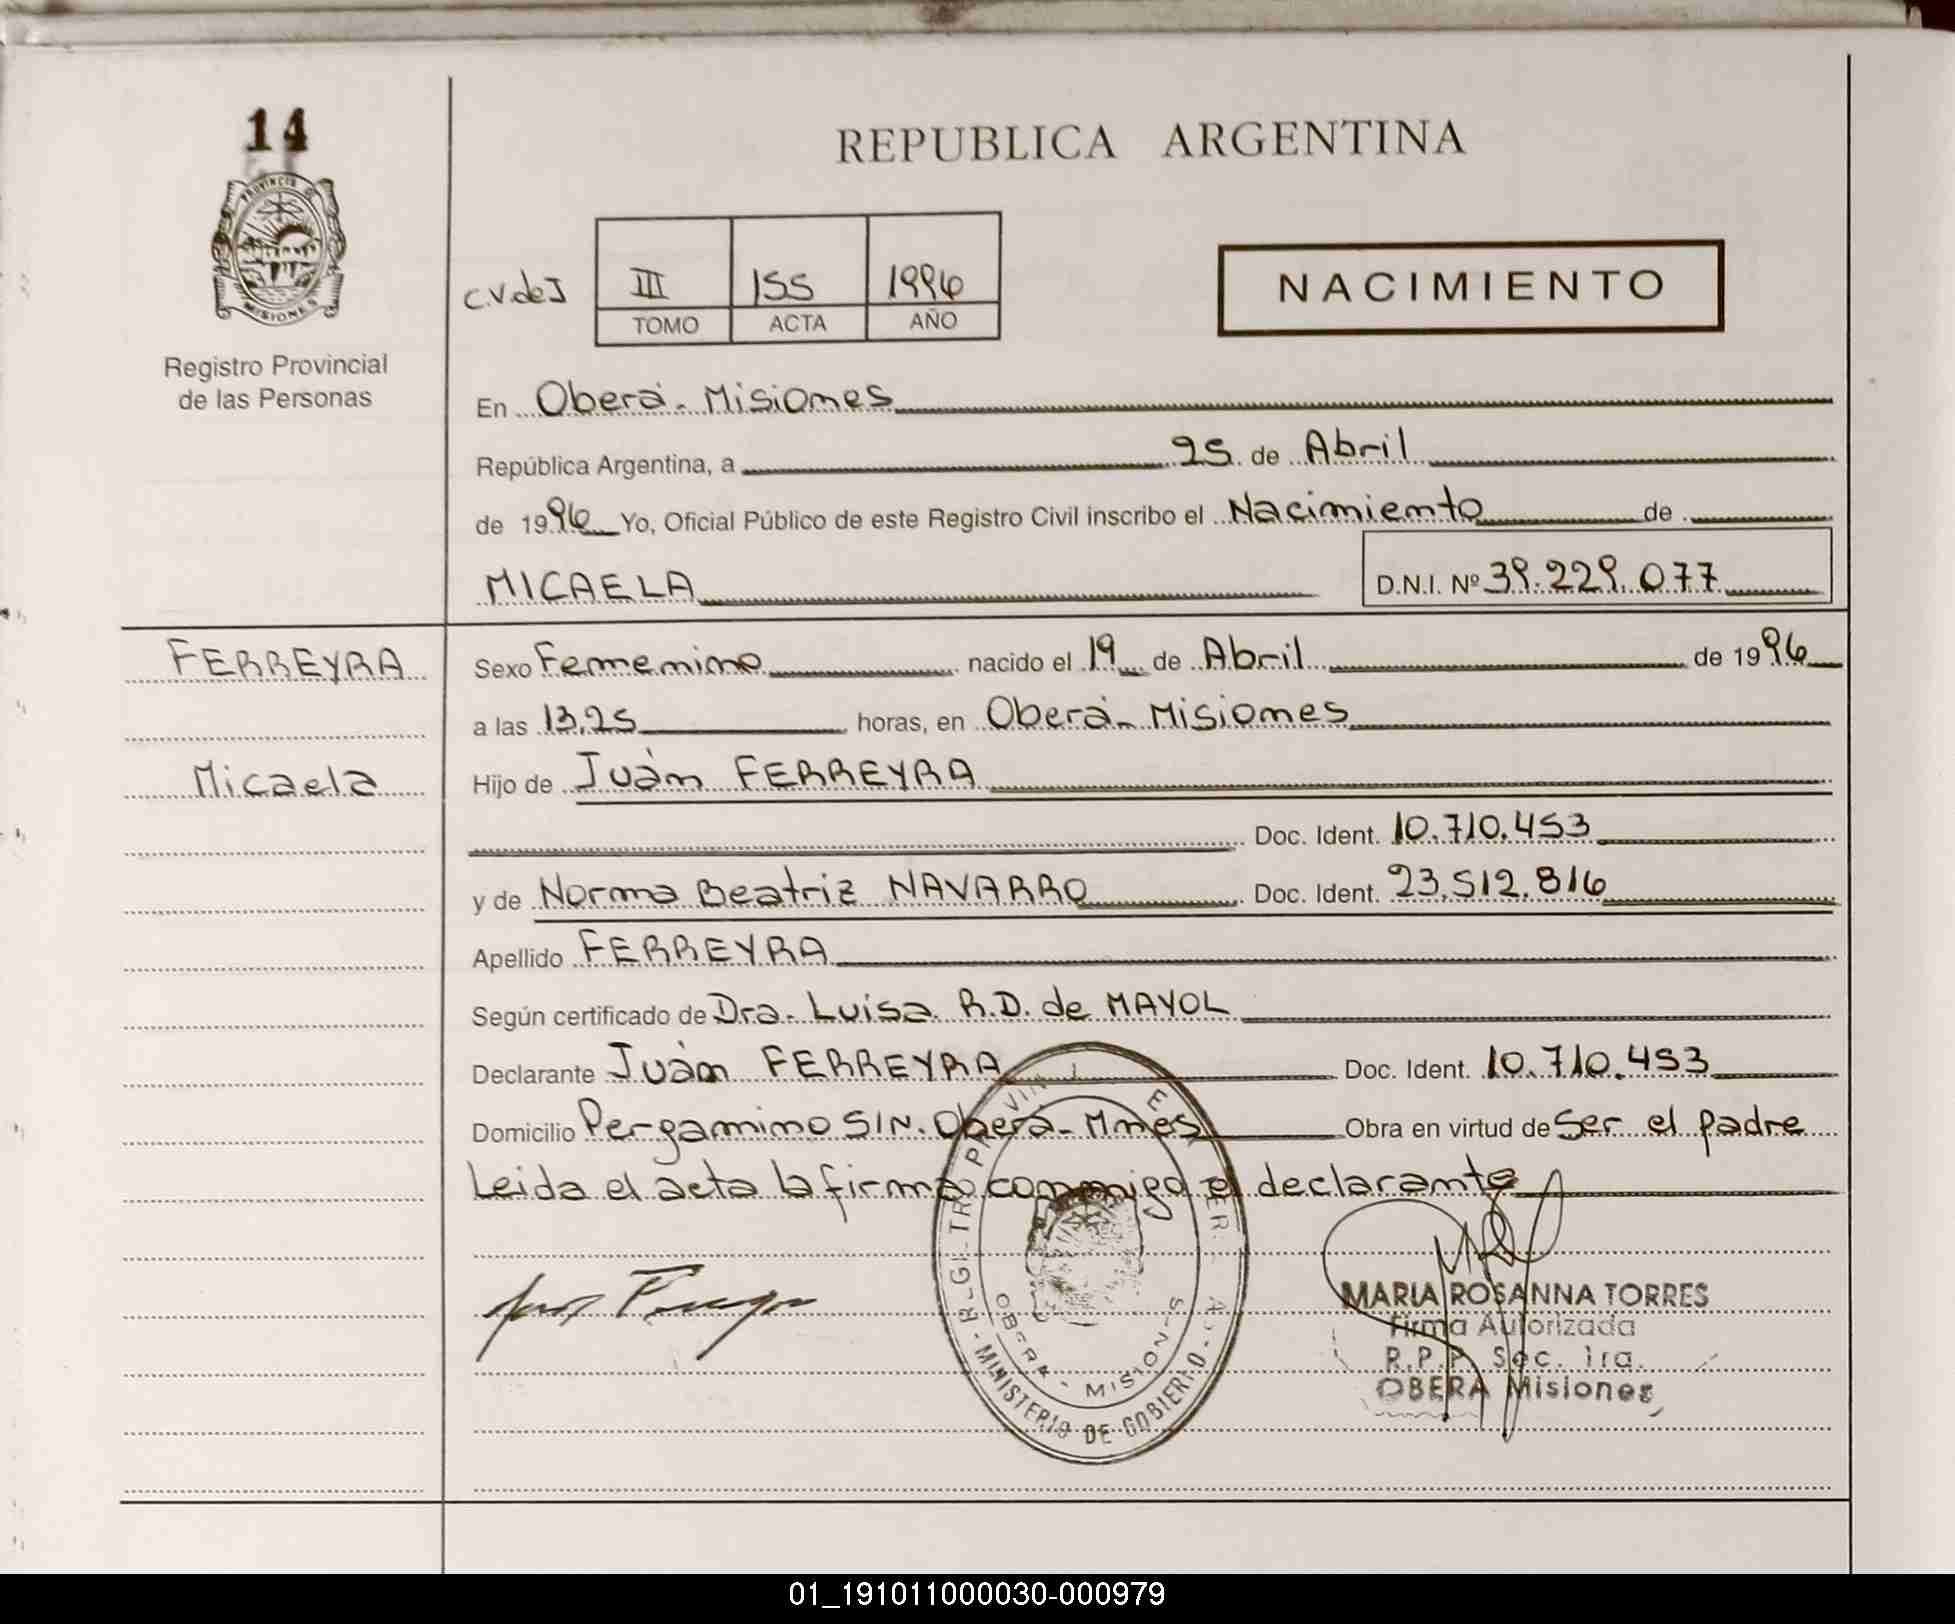 14
REPUBLICA ARGENTINA
PROVINCIA D
MISIONES
Registro Provincial
de las Personas
C.V.deJ
III 155 1996
TOMO ACTA AÑO
NACIMIENTO
En Oberá - Misiones
República Argentina, a 25 de Abril
de 1996 Yo, Oficial Público de este Registro Civil inscribo el Nacimiento de
MICAELA D.N.I. Nº 39.229.077
FERREYRA
Sexo Femenino nacido el 19 de Abril de 1996
a las 13,25 horas, en Oberá - Misiones
Micaela
Hijo de Juán FERREYRA
Doc. Ident. 10.710.453
y de Norma Beatriz NAVARRO Doc. Ident. 23.512.816
Apellido FERREYRA
Según certificado de Dra. Luisa R.D. de MAYOL
Declarante Juán FERREYRA Doc. Ident. 10.710.453
Domicilio Pergamino S/N. Oberá - Mnes Obra en virtud de Ser el padre
Leida el acta la firma conmigo el declarante
MARIA ROSANNA TORRES
Firma Autorizada
R.P.P. Sec. 1ra.
OBERA Misiones
OBERA - MISIONES
MINISTERIO DE GOBIERNO
01_191011000030-000979